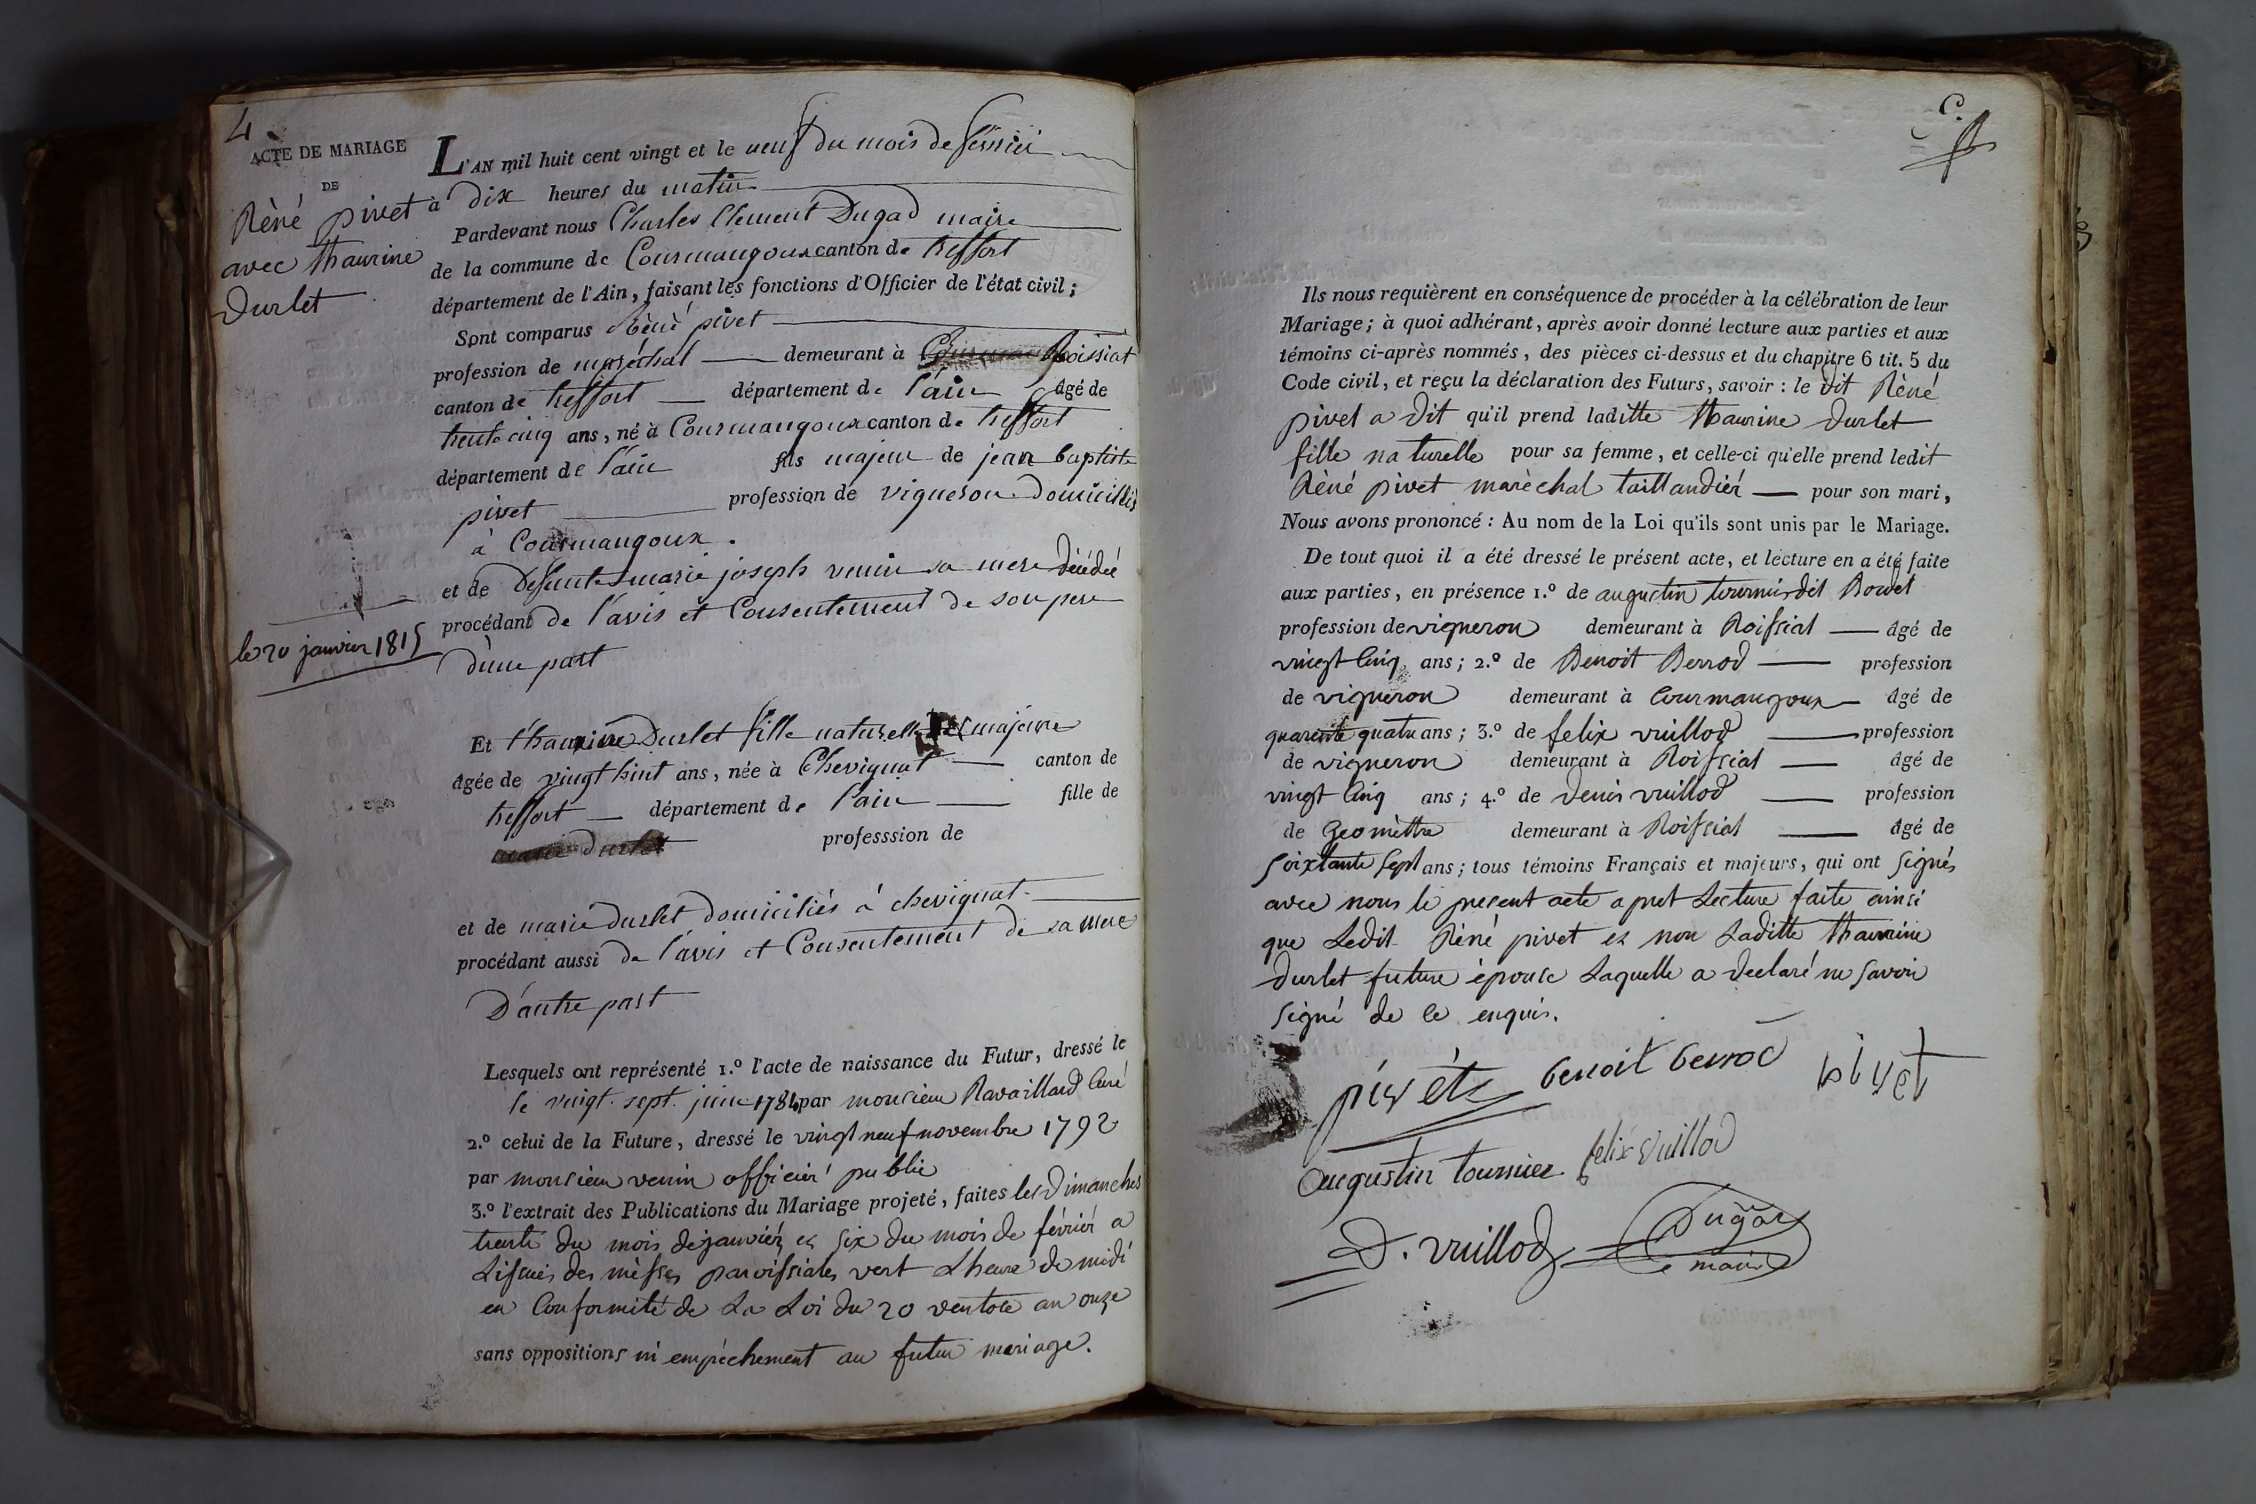 4
ACTE DE MARIAGE
DE
Rèné pivet
avec thaurine
Durlet
L'AN mil huit cent vingt et le neuf du mois de février
à Dix heures du matin
Pardevant nous Charles Clement Dugad maire
de la commune de Courmangoux canton de treffort
département de l'Ain, faisant les fonctions d'Officier de l'état civil ;
Sont comparus Rèné pivet
profession de maréchal demeurant à Roissiat
canton de treffort département de l'ain âgé de
trente cinq ans, né à Courmangoux canton de treffort
département de l'ain fils majeur de jean baptiste
pivet profession de vigneron domiciliés
à Courmangoux.
et de deffunte marie joseph venin sa mere décédée
procédant de l'avis et Consentement de son pere
le 20 janvier 1815
d'une part
Et thaurine Durlet fille naturelle et majeure
âgée de vingt huit ans, née à Chevignat canton de
treffort département de l'ain fille de
marie durlet professsion de
et de marie durlet domiciliés á chevignat
procédant aussi de l'avis et Consentement de sa mere
D'autre part
Lesquels ont représenté 1.º l'acte de naissance du Futur, dressé le
le vingt sept juin 1784 par monsieur Ravaillard Curé
2.º celui de la Future, dressé le vingt neuf novembre 1792
par monsieur venin officier public
3.º l'extrait des Publications du Mariage projeté, faites les Dimanches
trente du mois de janvier et six du mois de février a
Lissues des mèsses paroissiales vert Lheure de midi
en Conformité de La Loi du 20 ventose an onze
sans oppositions ni empèchement au futur mariage.
C.
Ils nous requièrent en conséquence de procéder à la célébration de leur
Mariage ; à quoi adhérant, après avoir donné lecture aux parties et aux
témoins ci-après nommés, des pièces ci-dessus et du chapitre 6 tit. 5 du
Code civil, et reçu la déclaration des Futurs, savoir : le dit Rèné
pivet a dit qu'il prend laditte thaurine durlet
fille naturelle pour sa femme, et celle-ci qu'elle prend ledit
Rèné pivet marèchal taillandiér pour son mari,
Nous avons prononcé : Au nom de la Loi qu'ils sont unis par le Mariage.
De tout quoi il a été dressé le présent acte, et lecture en a été faite
aux parties, en présence 1.º de augustin tournier dit Bowet
profession de vigneron demeurant à Roissiat âgé de
vingt Cinq ans ; 2.º de Benoit Berrod profession
de vigneron demeurant à Courmangoux âgé de
quarante quatre ans ; 3.º de felix vuillod profession
de vigneron demeurant à Roissiat âgé de
vingt Cinq ans ; 4.º de denis vuillod profession
de Geomêttre demeurant à Roissiat âgé de
soixtante Sept ans ; tous témoins Français et majeurs, qui ont signés
avec nous le present acte apret Lecture faite ainsi
que Ledit Rèné pivet et non Laditte thaurine
durlet future épouse Laquelle a declaré ne savoir
signé de ce enquis.
pivét benoit berrod pivet
augustin tournier felix vuillod
D. vuillod Dugad
maire